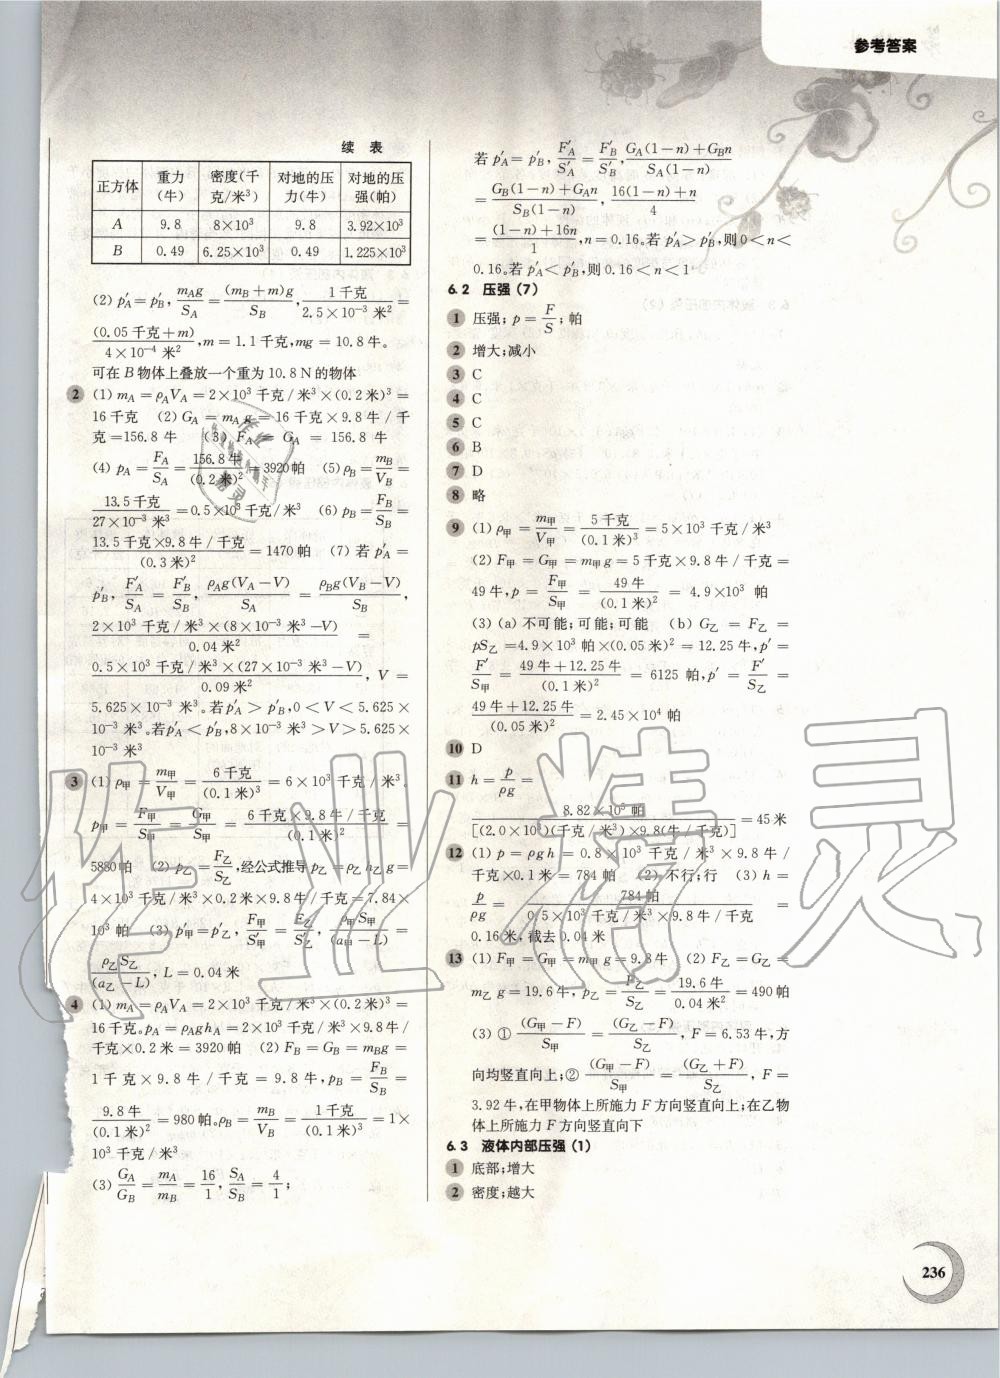 参考答案
续 表
正方体 重力(牛) 密度(千克/米³) 对地的压力(牛) 对地的压强(帕)
A 9.8 8×10³ 9.8 3.92×10³
B 0.49 6.25×10³ 0.49 1.225×10³
(2) p′A=p′B, mAg/SA=(mB+m)g/SB, 1千克/2.5×10⁻³米²=
(0.05千克+m)/4×10⁻⁴米², m=1.1千克,mg=10.8牛。
可在B物体上叠放一个重为10.8N的物体
2 (1) mA=ρAVA=2×10³千克/米³×(0.2米)³=
16千克 (2) GA=mAg=16千克×9.8牛/千
克=156.8牛 (3) FA=GA=156.8牛
(4) pA=FA/SA=156.8牛/(0.2米)²=3920帕 (5) ρB=mB/VB=
13.5千克/27×10⁻³米³=0.5×10³千克/米³ (6) pB=FB/SB=
13.5千克×9.8牛/千克/(0.3米)²=1470帕 (7) 若p′A=
p′B, F′A/SA=F′B/SB, ρAg(VA-V)/SA=ρBg(VB-V)/SB,
2×10³千克/米³×(8×10⁻³米³-V)/0.04米²=
0.5×10³千克/米³×(27×10⁻³米³-V)/0.09米², V=
5.625×10⁻³米³。若p′A>p′B,0<V<5.625×
10⁻³米³。若p′A<p′B,8×10⁻³米³>V>5.625×
10⁻³米³
3 (1) ρ甲=m甲/V甲=6千克/(0.1米)³=6×10³千克/米³。
p甲=F甲/S甲=G甲/S甲=6千克×9.8牛/千克/(0.1米)²=
5880帕 (2) p乙=F乙/S乙,经公式推导p乙=ρ乙h乙g=
4×10³千克/米³×0.2米×9.8牛/千克=7.84×
10³帕 (3) p′甲=p′乙, F甲/S′甲=F乙/S′乙, ρ甲S甲/(a甲-L)=
ρ乙S乙/(a乙-L), L=0.04米
4 (1) mA=ρAVA=2×10³千克/米³×(0.2米)³=
16千克。pA=ρAghA=2×10³千克/米³×9.8牛/
千克×0.2米=3920帕 (2) FB=GB=mBg=
1千克×9.8牛/千克=9.8牛,pB=FB/SB=
9.8牛/(0.1米)²=980帕。ρB=mB/VB=1千克/(0.1米)³=1×
10³千克/米³
(3) GA/GB=mA/mB=16/1, SA/SB=4/1;
若p′A=p′B, F′A/S′A=F′B/S′B, GA(1-n)+GBn/SA(1-n)
=GB(1-n)+GAn/SB(1-n), 16(1-n)+n/4
=(1-n)+16n/1,n=0.16。若p′A>p′B,则0<n<
0.16。若p′A<p′B,则0.16<n<1
6.2 压强(7)
1 压强; p=F/S; 帕
2 增大;减小
3 C
4 C
5 C
6 B
7 D
8 略
9 (1) ρ甲=m甲/V甲=5千克/(0.1米)³=5×10³千克/米³
(2) F甲=G甲=m甲g=5千克×9.8牛/千克=
49牛,p=F甲/S甲=49牛/(0.1米)²=4.9×10³帕
(3) (a) 不可能;可能;可能 (b) G乙=F乙=
pS乙=4.9×10³帕×(0.05米)²=12.25牛,p′=
F′/S甲=49牛+12.25牛/(0.1米)²=6125帕,p′=F′/S乙=
49牛+12.25牛/(0.05米)²=2.45×10⁴帕
10 D
11 h=p/ρg=
8.82×10⁵帕/[(2.0×10³)(千克/米³)×9.8(牛/千克)]=45米
12 (1) p=ρgh=0.8×10³千克/米³×9.8牛/
千克×0.1米=784帕 (2) 不行;行 (3) h=
p/ρg=784帕/0.5×10³千克/米³×9.8牛/千克=
0.16米,截去0.04米
13 (1) F甲=G甲=m甲g=9.8牛 (2) F乙=G乙=
m乙g=19.6牛,p乙=F乙/S乙=19.6牛/0.04米²=490帕
(3) ①(G甲-F)/S甲=(G乙-F)/S乙, F=6.53牛,方
向均竖直向上;②(G甲-F)/S甲=(G乙+F)/S乙, F=
3.92牛,在甲物体上所施力F方向竖直向上;在乙物
体上所施力F方向竖直向下
6.3 液体内部压强(1)
1 底部;增大
2 密度;越大
236
作业精灵